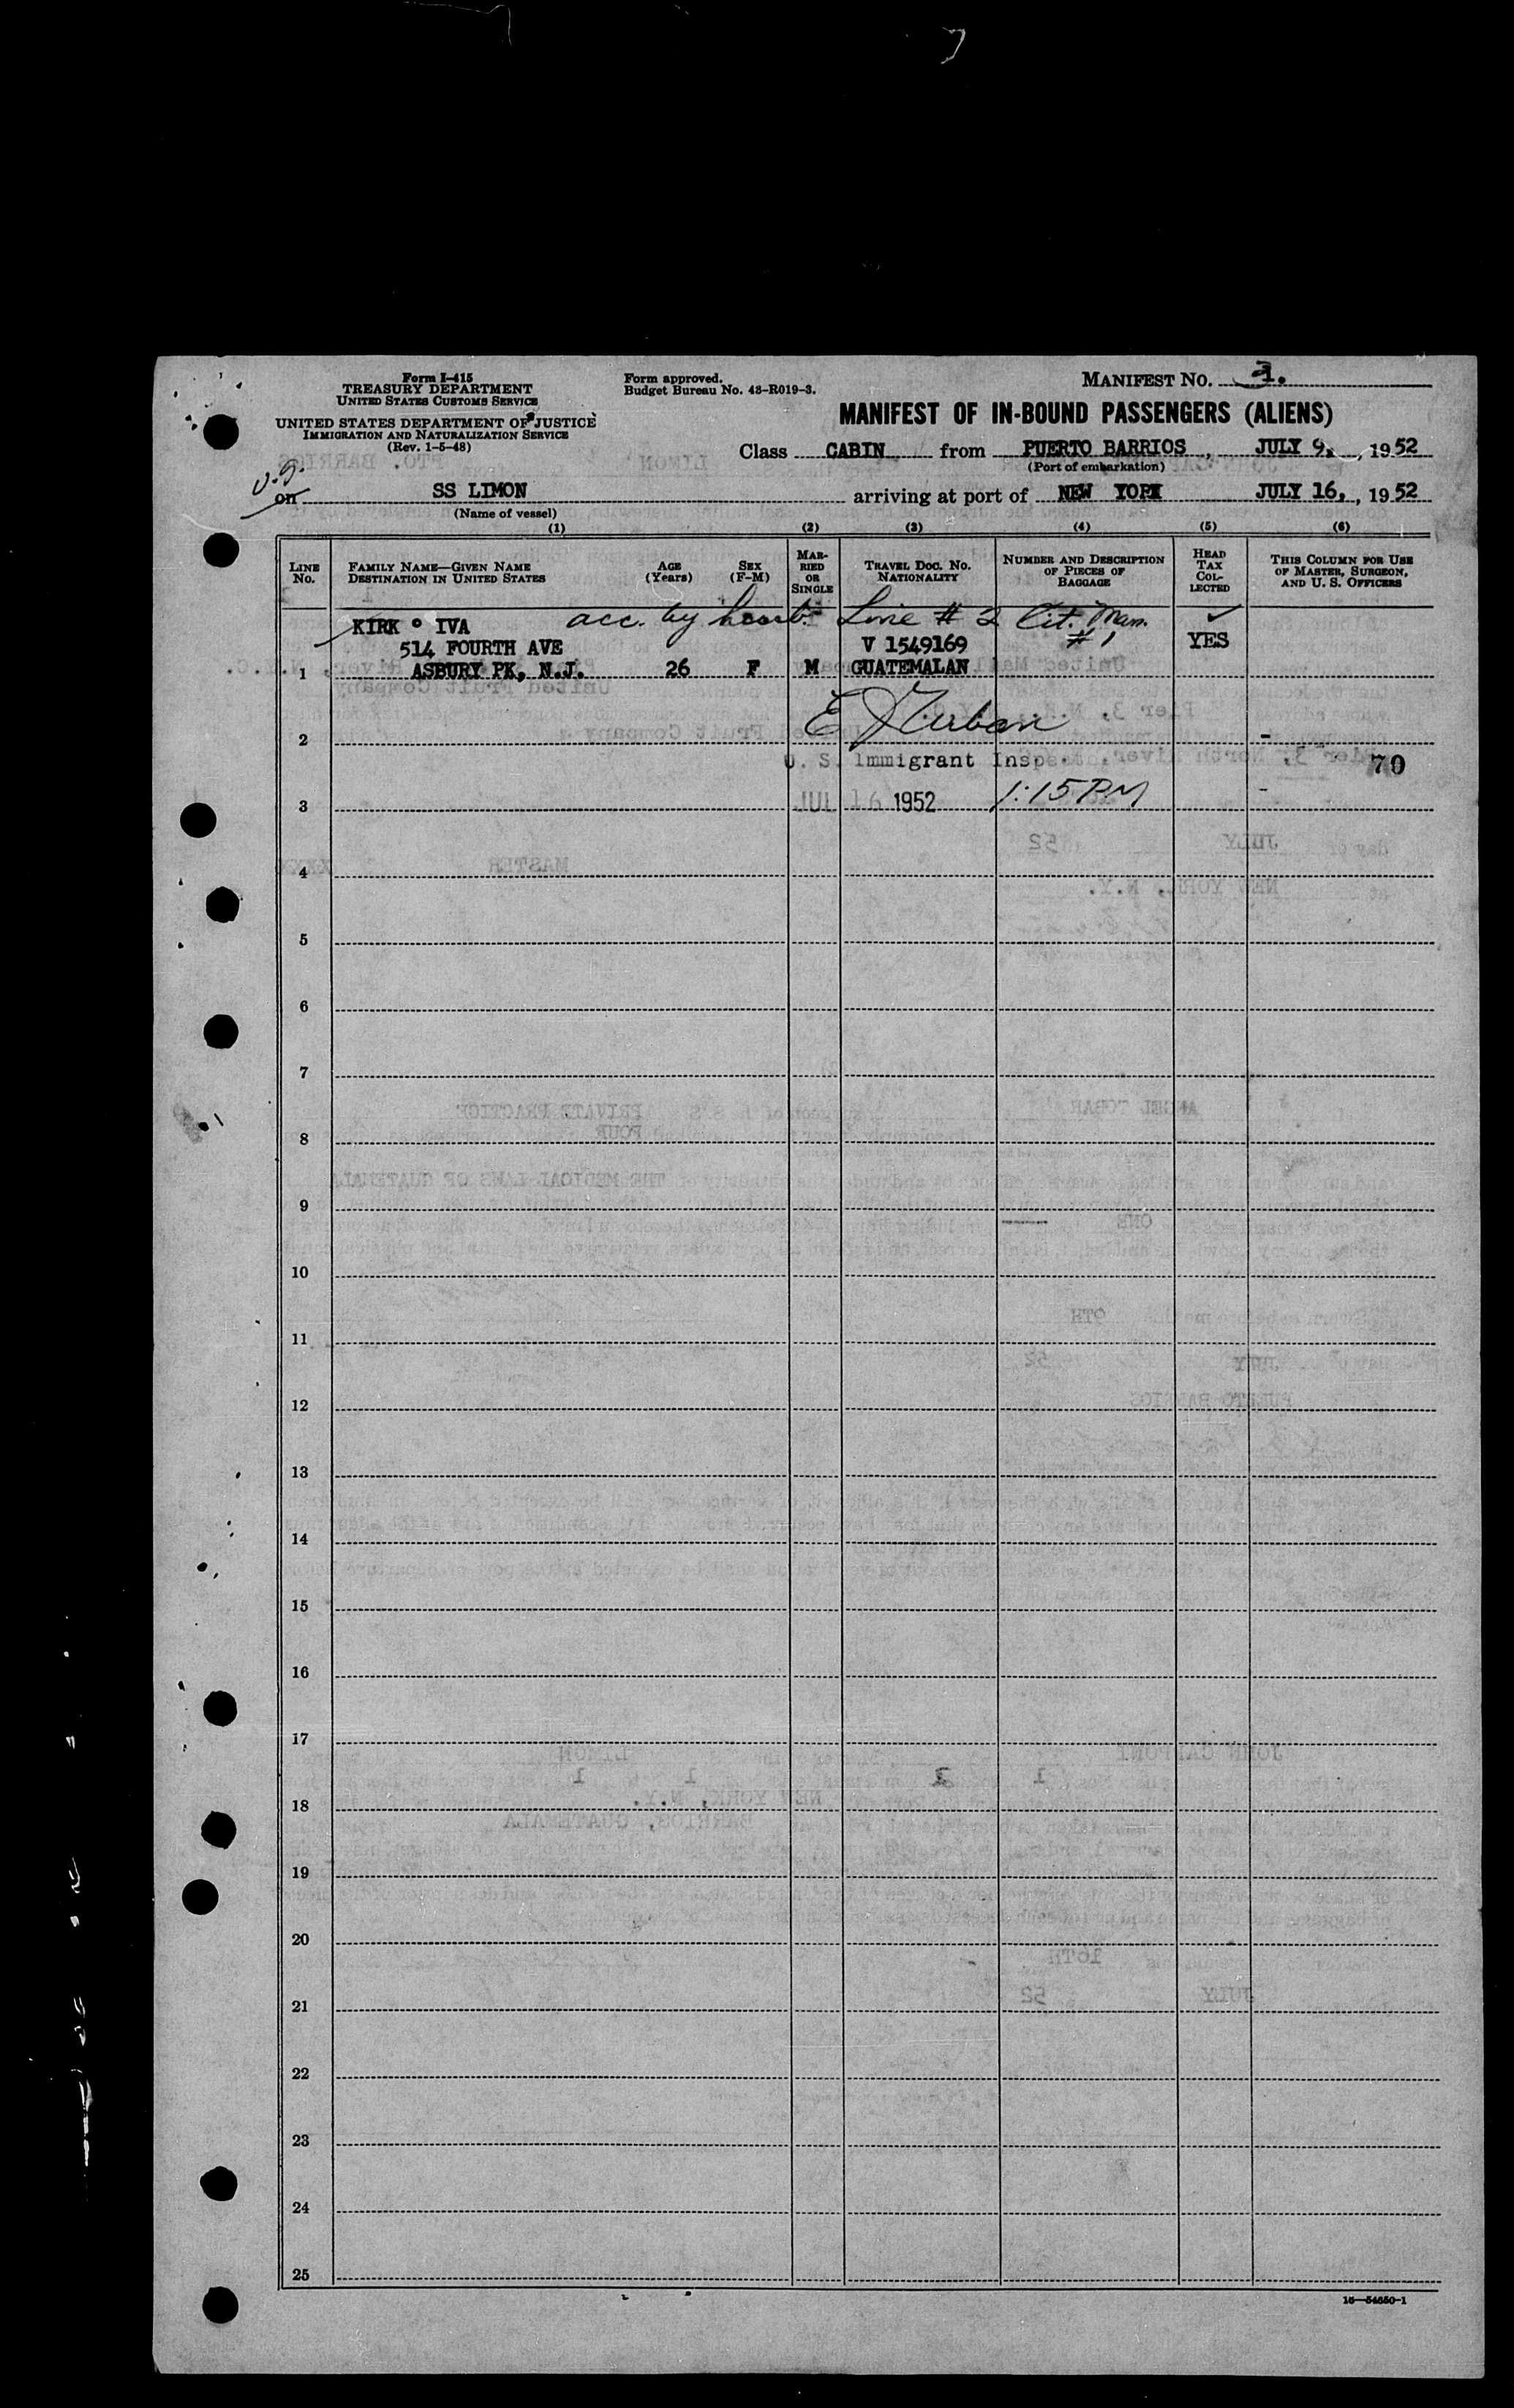 Form I-415
TREASURY DEPARTMENT
UNITED STATES CUSTOMS SERVICE
UNITED STATES DEPARTMENT OF JUSTICE
IMMIGRATION AND NATURALIZATION SERVICE
(Rev. 1-5-48)
Form approved.
Budget Bureau No. 43-R019-3.
MANIFEST NO. 1.
MANIFEST OF IN-BOUND PASSENGERS (ALIENS)
Class CABIN from PUERTO BARRIOS, JULY 9, 1952
(Port of embarkation)
on SS LIMON arriving at port of NEW YORK JULY 16, 1952
(Name of vessel)
(1) (2) (3) (4) (5) (6)
LINE No.
FAMILY NAME—GIVEN NAME
DESTINATION IN UNITED STATES
AGE (Years)
SEX (F-M)
MARRIED OR SINGLE
TRAVEL DOC. NO.
NATIONALITY
NUMBER AND DESCRIPTION OF PIECES OF BAGGAGE
HEAD TAX COLLECTED
THIS COLUMN FOR USE OF MASTER, SURGEON, AND U. S. OFFICERS
acc. by husb. Line # 2 Cit. Man. # 1
KIRK IVA
514 FOURTH AVE V 1549169 YES
1 ASBURY PK, N.J. 26 F M GUATEMALAN
2
U. S. Immigrant Inspe 70
3 JUL 16 1952 1:15 PM
4
5
6
7
8
9
10
11
12
13
14
15
16
17
18
19
20
21
22
23
24
25